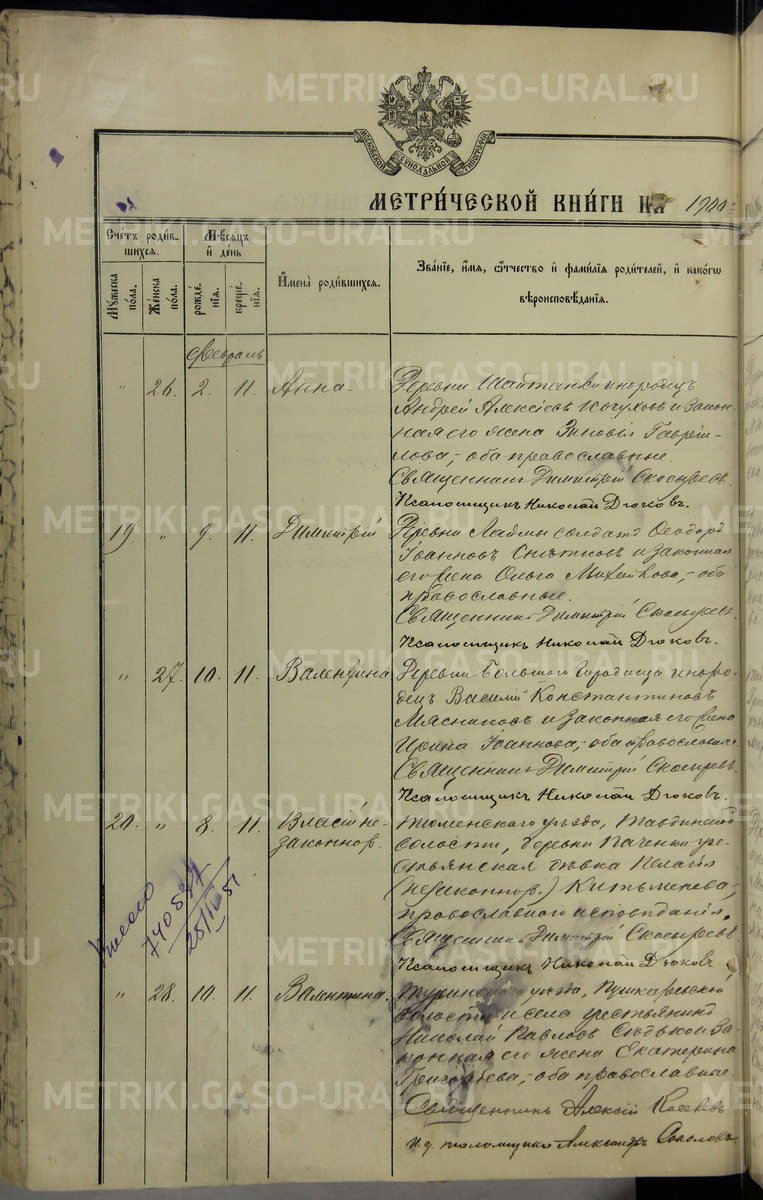 METRIKI.GASO-URAL.RU
МОСКОВСКОЙ СѴНОДАЛЬНОЙ ТИПОГРАФІИ
МЕТРИ́ЧЕСКОЙ КНИ́ГИ НА 1900
Сче́тъ роди́в-
шихся.
Мꙋ́жеска по́ла.
Же́нска по́ла.
Мѣ́сяцъ
и҆ де́нь
рожде́нїя.
креще́нїя.
И҆мена̀ роди́вшихся.
Зва́нїе, и҆́мя, ѻ҆́тчество и҆ фами́лїя роди́телей, и҆ како́гѡ
вѣроисповѣ́данїя.
Февраль
" 26. 2. 11. Анна. Деревни Шайтанки инородецъ
Андрей Алексѣевъ и закон-
ная его жена Зиновія Гаврии-
лова, оба православные.
Священникъ Димитрій Скосыревъ.
Псаломщикъ Николай Дьяковъ.
19. " 9. 11. Димитрій Деревни солдатъ Ѳеодоръ
Іоанновъ и законная
его жена Ольга Михайлова, оба
православные.
Священникъ Димитрій Скосыревъ.
Псаломщикъ Николай Дьяковъ.
" 27. 10. 11. Валентина Деревни Большой Городища иноро-
децъ Василій Константиновъ
Мясниковъ и законная его жена
Ирина Іоаннова, оба православные
Священникъ Димитрій Скосыревъ.
Псаломщикъ Николай Дьяковъ.
20. " 8. 11. Власій не-
законнор. Тюменскаго уѣзда, Тавдинской
волости, деревни кре-
стьянская дѣвка Пелагія
(незаконнор.) Китьменева,
православнаго исповѣданія.
Священникъ Димитрій Скосыревъ
Псаломщикъ Николай Дьяковъ.
740537
25/
51
" 28. 10. 11. Валентина. Туринскаго уѣзда, Пушкаревской
волости и села крестьянинъ
Николай Павловъ и за-
конная его жена Екатерина
Григорьева, оба православные.
Священникъ Алексій
и. д. псаломщика Александръ Соколовъ